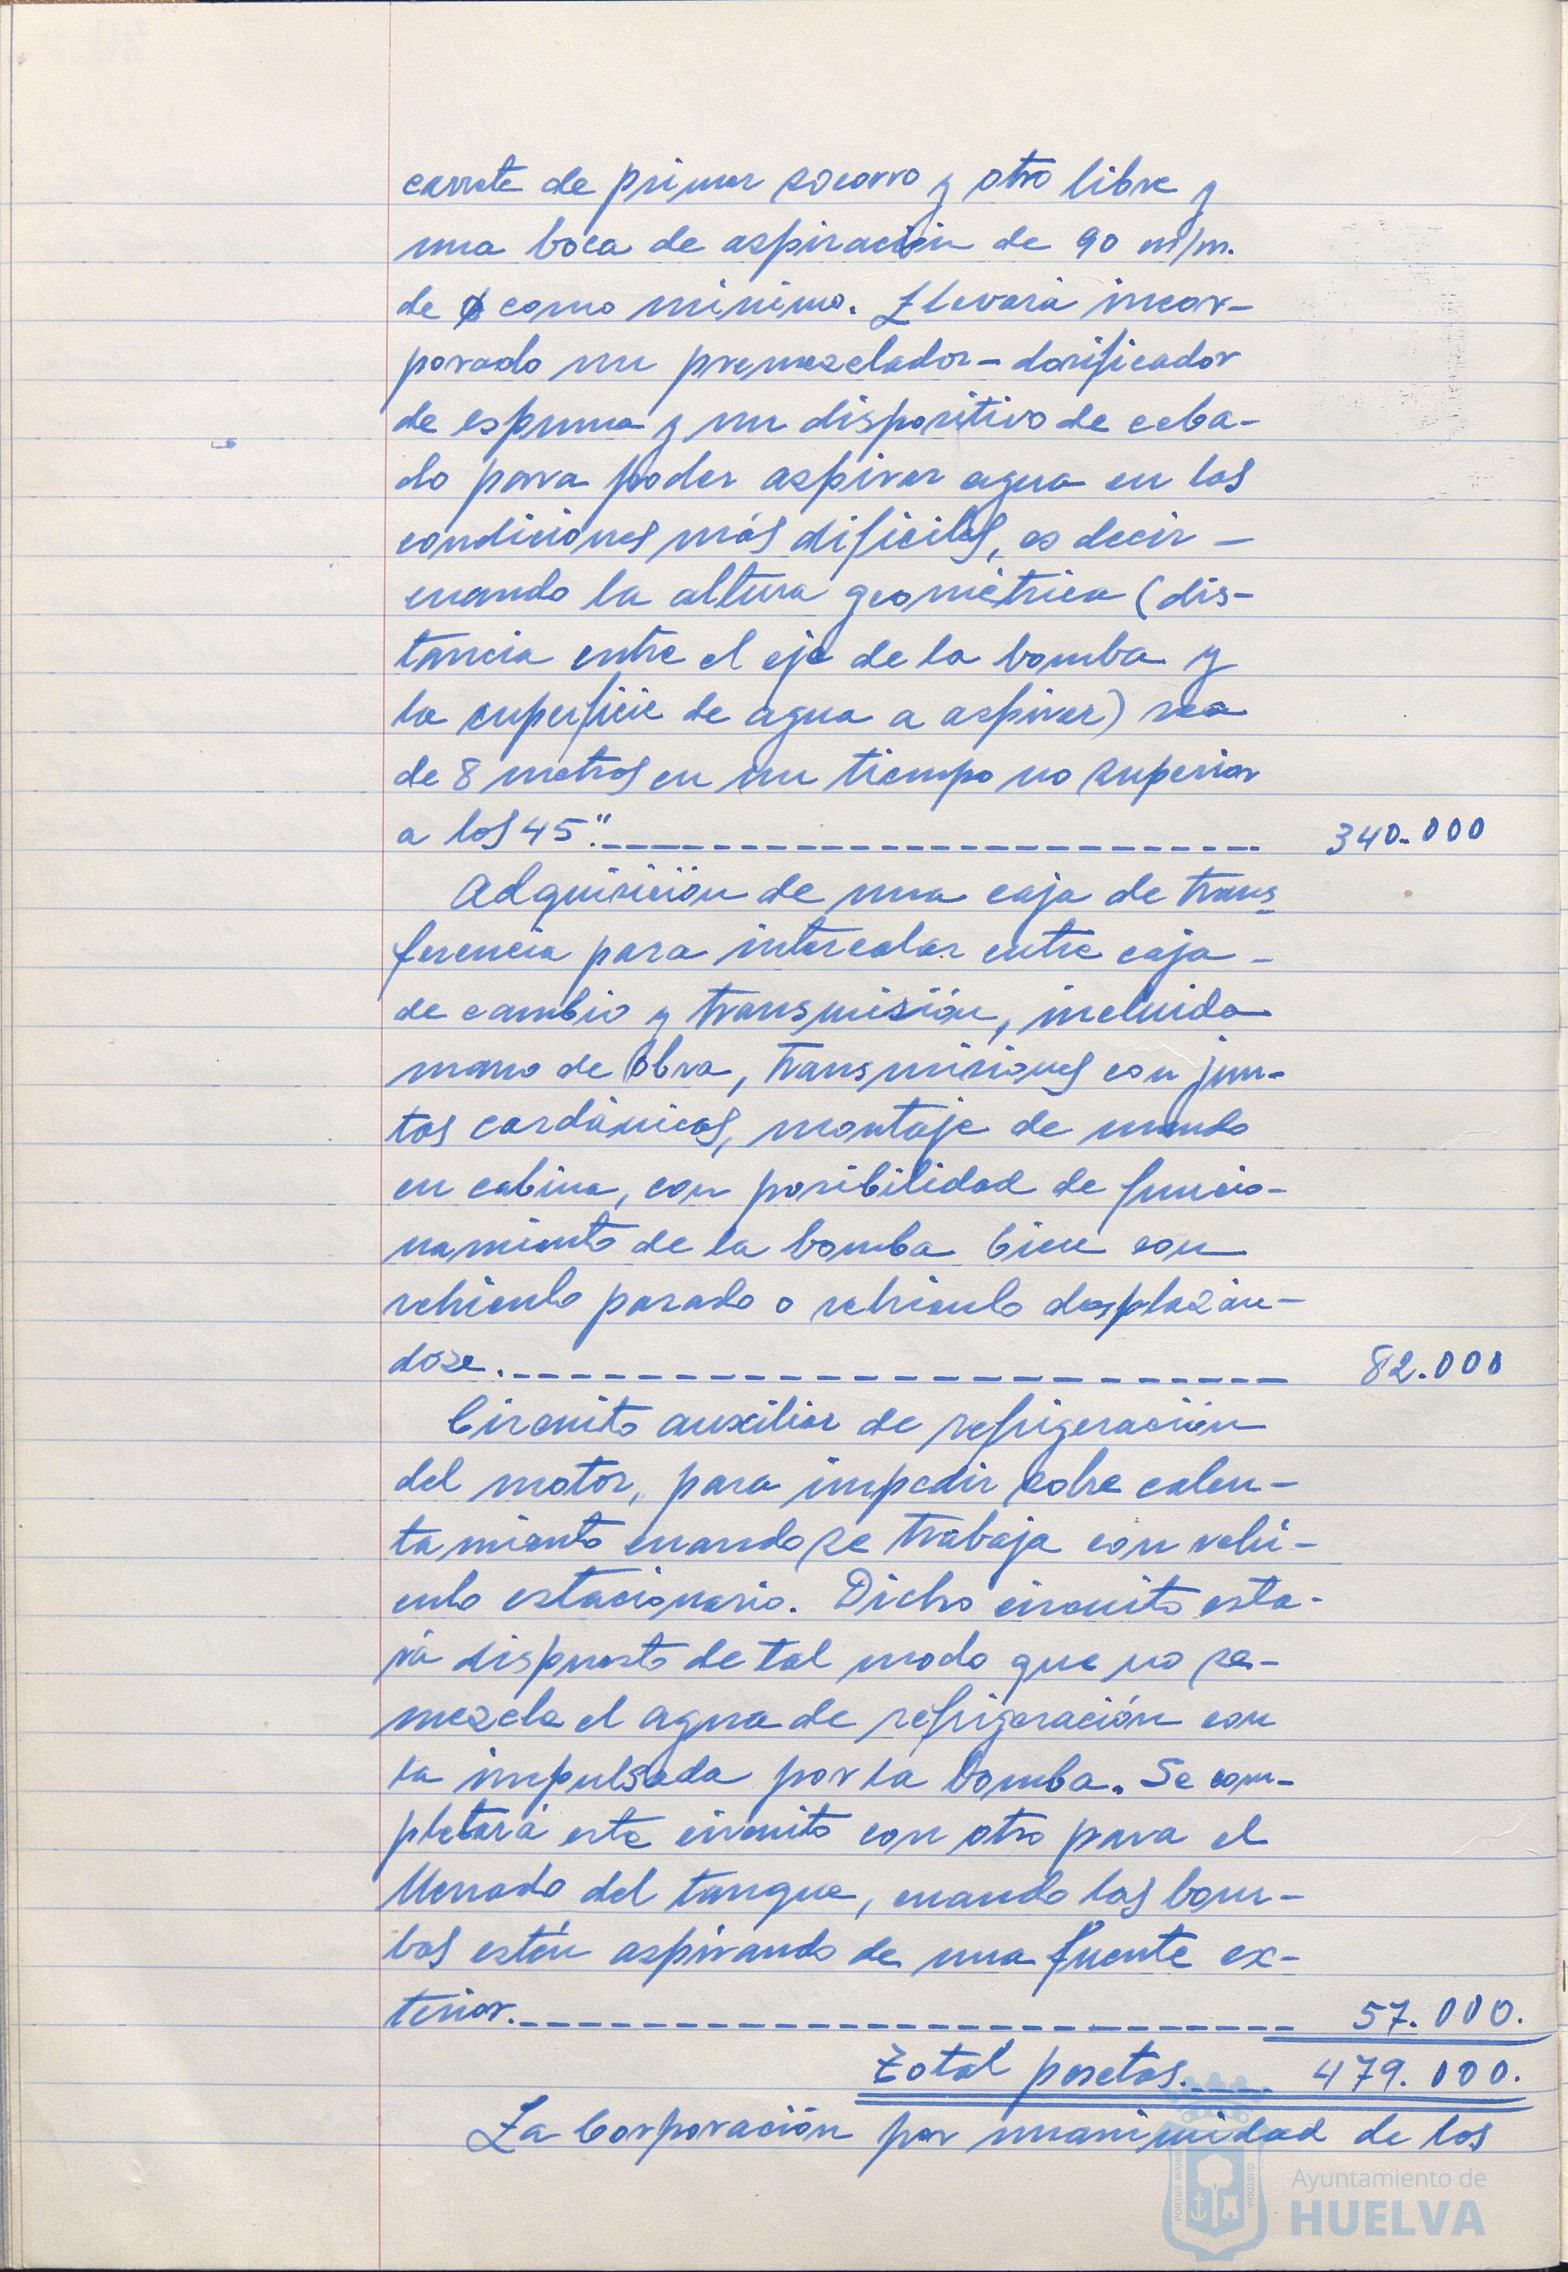 carrete de primer socorro y otro libre y
una boca de aspiración de 90 m/m.
de ϕ como mínimo. Llevará incor-
porado un premezclador-dosificador
de espuma y un dispositivo de ceba-
do para poder aspirar agua en las
condiciones más dificiles, es decir -
cuando la altura geométrica (dis-
tancia entre el eje de la bomba y
la superficie de agua a aspirar) sea
de 8 metros en un tiempo no superior
a los 45". 340.000
Adquisición de una caja de trans-
ferencia para intercalar entre caja -
de cambio y transmisión, incluida
mano de obra, transmisiones con jun-
tas cardánicas, montaje de mando
en cabina, con posibilidad de funcio-
namiento de la bomba bien con
vehículo parado o vehículo desplazán-
dose. 82.000
Circuito auxiliar de refrigeración
del motor, para impedir sobre calen-
tamiento cuando se trabaja con vehí-
culo estacionario. Dicho circuito esta-
rá dispuesto de tal modo que no se-
mezcle el agua de refrigeración con
la impulsada por la bomba. Se com-
pletará este circuito con otro para el
llenado del tanque, cuando las bom-
bas estén aspirando de una fuente ex-
terior. 57.000.
Total pesetas. 479.000.
La Corporación por unanimidad de los
PORTUS MARIS
CUSTODIA
Ayuntamiento de
HUELVA